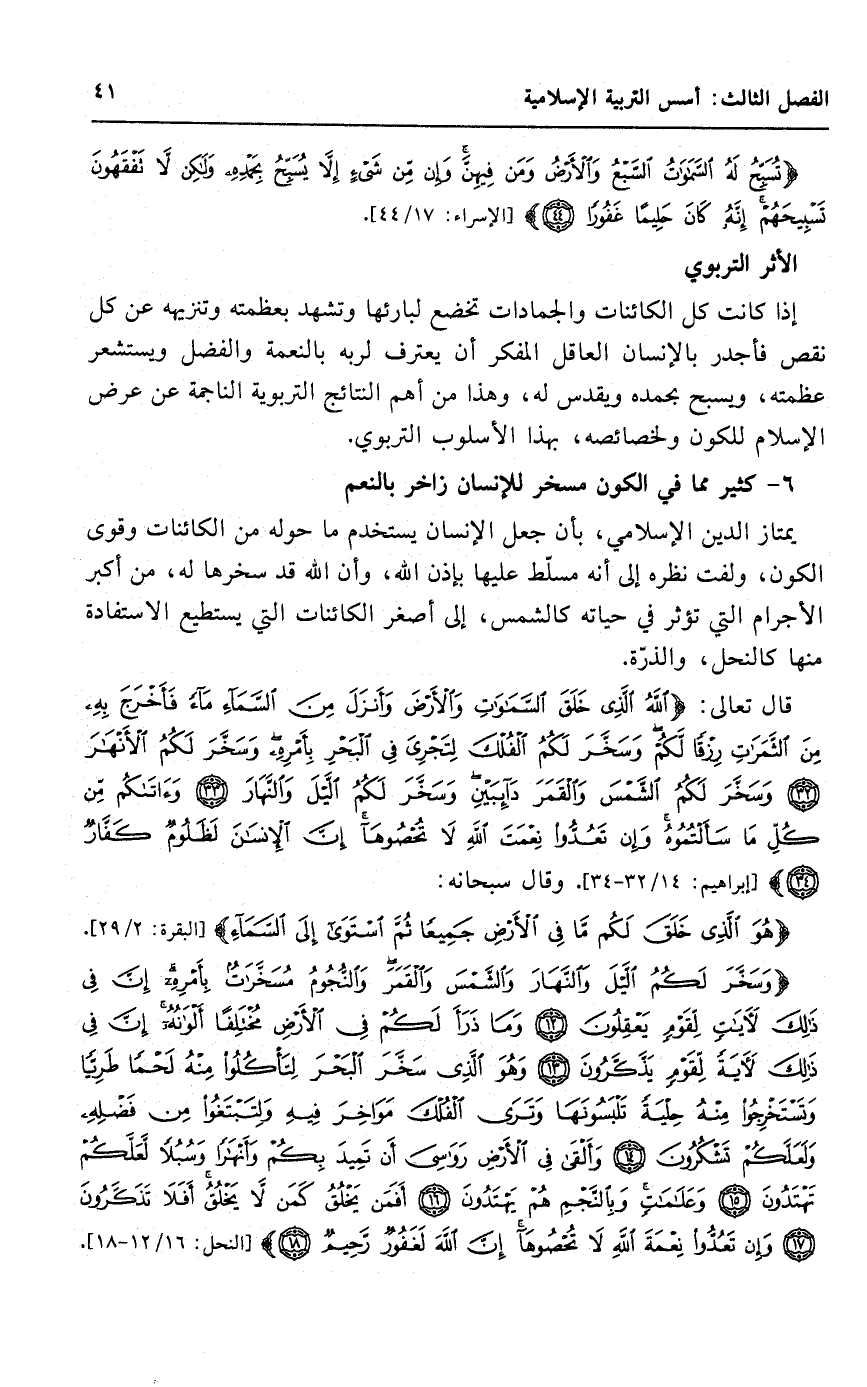 الفصل الثالث: أسس التربية الإسلامية ٤١
﴿تُسَبِّحُ لَهُ ٱلسَّمَٰوَٰتُ ٱلسَّبْعُ وَٱلْأَرْضُ وَمَن فِيهِنَّ ۚ وَإِن مِّن شَىْءٍ إِلَّا يُسَبِّحُ بِحَمْدِهِۦ وَلَٰكِن لَّا نَفْقَهُونَ
تَسْبِيحَهُمْ ۗ إِنَّهُۥ كَانَ حَلِيمًا غَفُورًا ﴿٤٤﴾﴾ [الإسراء: ٤٤/١٧].
الأثر التربوي
إذا كانت كل الكائنات والجمادات تخضع لبارئها وتشهد بعظمته وتنزيهه عن كل
نقص فأجدر بالإنسان العاقل المفكر أن يعترف لربه بالنعمة والفضل ويستشعر
عظمته، ويسبح بحمده ويقدس له، وهذا من أهم النتائج التربوية الناجمة عن عرض
الإسلام للكون ولخصائصه، بهذا الأسلوب التربوي.
٦- كثير مما في الكون مسخر للإنسان زاخر بالنعم
يمتاز الدين الإسلامي، بأن جعل الإنسان يستخدم ما حوله من الكائنات وقوى
الكون، ولفت نظره إلى أنه مسلّط عليها بإذن الله، وأن الله قد سخرها له، من أكبر
الأجرام التي تؤثر في حياته كالشمس، إلى أصغر الكائنات التي يستطيع الاستفادة
منها كالنحل، والذرّة.
قال تعالى: ﴿ٱللَّهُ ٱلَّذِى خَلَقَ ٱلسَّمَٰوَٰتِ وَٱلْأَرْضَ وَأَنزَلَ مِنَ ٱلسَّمَآءِ مَآءً فَأَخْرَجَ بِهِۦ
مِنَ ٱلثَّمَرَٰتِ رِزْقًا لَّكُمْ ۖ وَسَخَّرَ لَكُمُ ٱلْفُلْكَ لِتَجْرِىَ فِى ٱلْبَحْرِ بِأَمْرِهِۦ ۖ وَسَخَّرَ لَكُمُ ٱلْأَنْهَٰرَ
﴿٣٢﴾ وَسَخَّرَ لَكُمُ ٱلشَّمْسَ وَٱلْقَمَرَ دَآئِبَيْنِ ۖ وَسَخَّرَ لَكُمُ ٱلَّيْلَ وَٱلنَّهَارَ ﴿٣٣﴾ وَءَاتَىٰكُم مِّن
كُلِّ مَا سَأَلْتُمُوهُ ۚ وَإِن تَعُدُّوا۟ نِعْمَتَ ٱللَّهِ لَا تُحْصُوهَآ ۗ إِنَّ ٱلْإِنسَٰنَ لَظَلُومٌ كَفَّارٌ
﴿٣٤﴾﴾ [إبراهيم: ٣٢/١٤-٣٤]. وقال سبحانه:
﴿هُوَ ٱلَّذِى خَلَقَ لَكُم مَّا فِى ٱلْأَرْضِ جَمِيعًا ثُمَّ ٱسْتَوَىٰٓ إِلَى ٱلسَّمَآءِ﴾ [البقرة: ٢٩/٢].
﴿وَسَخَّرَ لَكُمُ ٱلَّيْلَ وَٱلنَّهَارَ وَٱلشَّمْسَ وَٱلْقَمَرَ ۖ وَٱلنُّجُومُ مُسَخَّرَٰتٌۢ بِأَمْرِهِۦٓ ۗ إِنَّ فِى
ذَٰلِكَ لَءَايَٰتٍ لِّقَوْمٍ يَعْقِلُونَ ﴿١٢﴾ وَمَا ذَرَأَ لَكُمْ فِى ٱلْأَرْضِ مُخْتَلِفًا أَلْوَٰنُهُۥٓ ۗ إِنَّ فِى
ذَٰلِكَ لَءَايَةً لِّقَوْمٍ يَذَّكَّرُونَ ﴿١٣﴾ وَهُوَ ٱلَّذِى سَخَّرَ ٱلْبَحْرَ لِتَأْكُلُوا۟ مِنْهُ لَحْمًا طَرِيًّا
وَتَسْتَخْرِجُوا۟ مِنْهُ حِلْيَةً تَلْبَسُونَهَا وَتَرَى ٱلْفُلْكَ مَوَاخِرَ فِيهِ وَلِتَبْتَغُوا۟ مِن فَضْلِهِۦ
وَلَعَلَّكُمْ تَشْكُرُونَ ﴿١٤﴾ وَأَلْقَىٰ فِى ٱلْأَرْضِ رَوَٰسِىَ أَن تَمِيدَ بِكُمْ وَأَنْهَٰرًا وَسُبُلًا لَّعَلَّكُمْ
تَهْتَدُونَ ﴿١٥﴾ وَعَلَٰمَٰتٍ ۚ وَبِٱلنَّجْمِ هُمْ يَهْتَدُونَ ﴿١٦﴾ أَفَمَن يَخْلُقُ كَمَن لَّا يَخْلُقُ ۗ أَفَلَا تَذَكَّرُونَ
﴿١٧﴾ وَإِن تَعُدُّوا۟ نِعْمَةَ ٱللَّهِ لَا تُحْصُوهَآ ۗ إِنَّ ٱللَّهَ لَغَفُورٌ رَّحِيمٌ ﴿١٨﴾﴾ [النحل: ١٢/١٦-١٨].